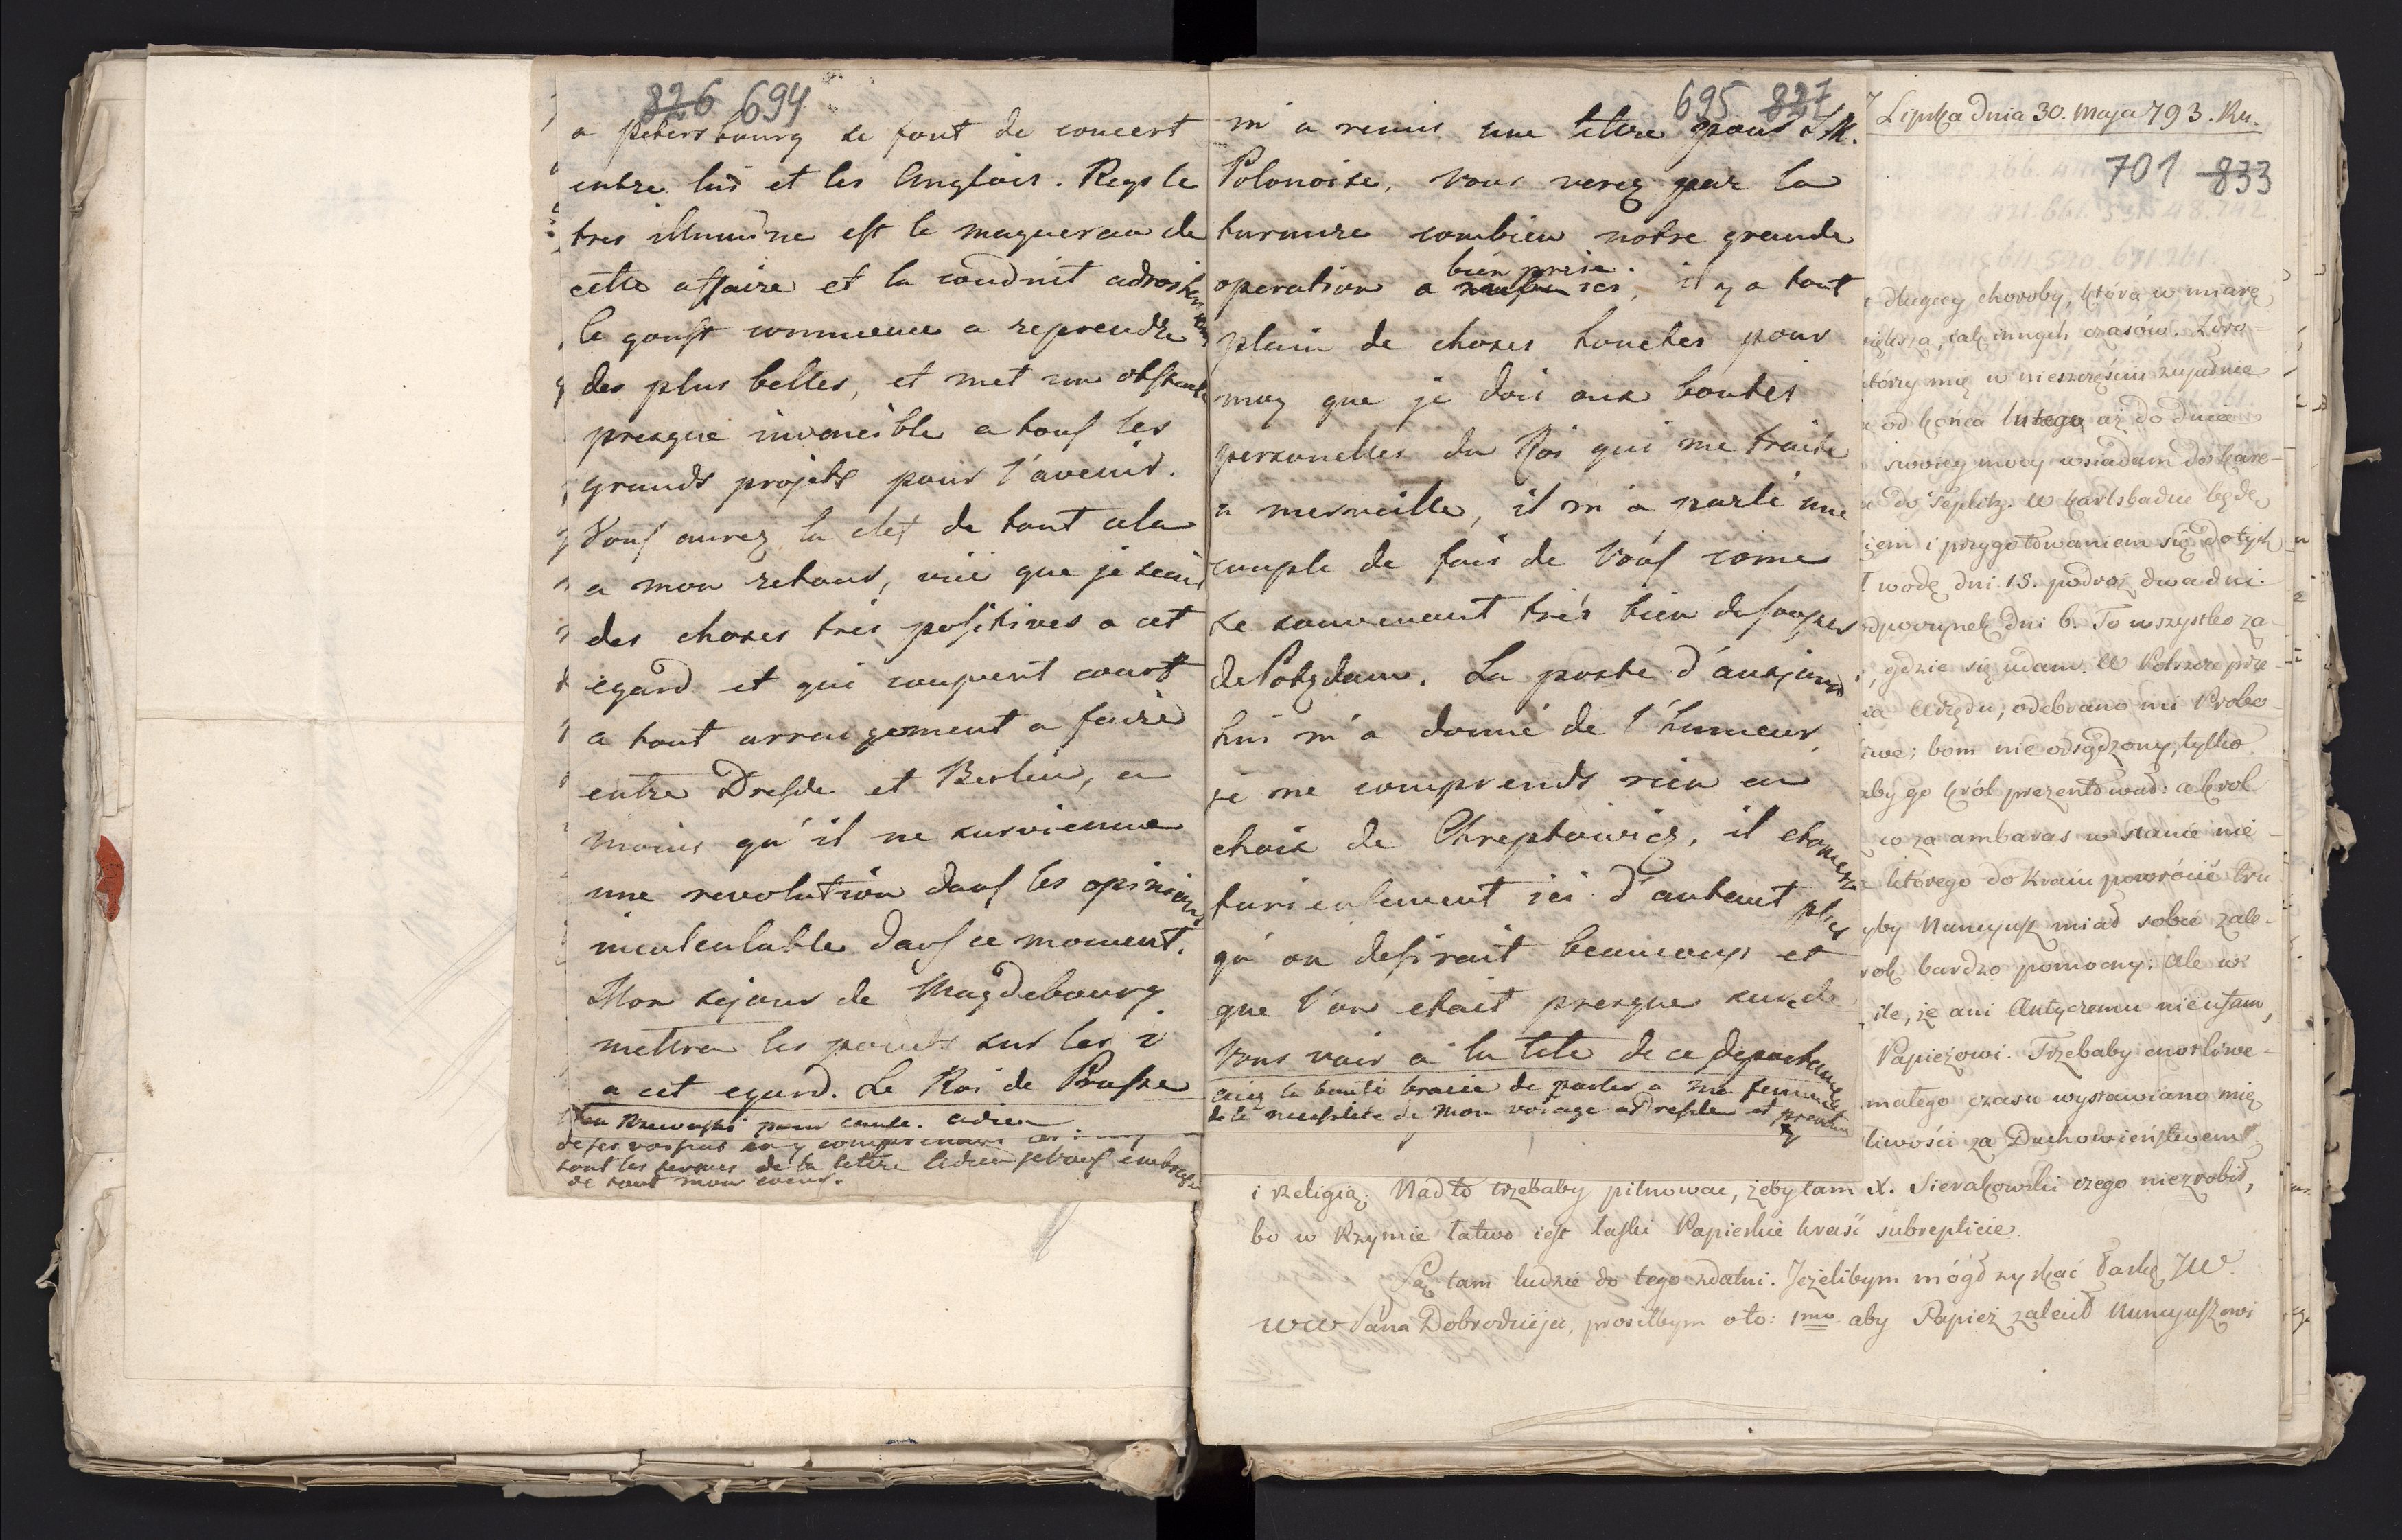 826 694
a Petersbourg se font de concert
entre lui et les Anglois. Reys le
tres illuminé est le maquerau de
cette affaire et la conduit adroitement
le goust commence a reprendre
des plus belles, et met un obstacle
presque invincible a tous les
grands projets pour l'avenir.
Vous aurez la clef de tout cela
a mon retour, vue que je scais
des choses tres positives a cet
egard et qui coupent court
a tout arrangement a faire
entre Dresde et Berlin, a
moins qu'il ne survienne
une revolution dans les opinions
incalculable dans ce moment.
Mon sejour de Magdebourg
mettra les points sur les i
a cet egard. Le Roi de Prusse
pour cause. adieu
de ses en y
tout les termes de la lettre adieu je vous embrasse
de tout mon coeur.
695 827
m'a remis une lettre pour S.M.
Polonoise, vous verez par la
turnure combien notre grande
bien prise.
operation a ici, il y a tout
plain de choses touches pour
moy que je dois aux bontés
personelles du Roi qui me traite
a merveille, il m'a parlé une
couple de fois de Vous come
se souvenant trés bien de soupes
de Potzdam. La poste d'aujourd
hui m'a donné de l'humeur,
je ne comprends rien au
choix de Chreptowicz, il etonnera
furieusement ici d'autant plus
qu'on desirait beaucoup et
que l'on etait presque sur de
Vous voir a la tete de ce departement
aiez la bonté de parler a ma femme
de la necessité de mon voiage a Dresde et
Lipska dnia 30. Maja 793. Ru.
701 833
długiey choroby, która w miarę
większa, jak innych czasów. Zdro-
którzy mię w nieszczęściu zupełnie
od końca lutego aż do dnia
swoiey mocy wsiadam do kare-
w Teplitz. W Karlsbadzie będę
iem i przygotowaniem się do tych
wodę dni 15. podróż dwa dni.
odpoczynek dni 6. To wszystko za-
, gdzie się udam. W Polszcze prze-
Urzędu, odebrano mi Probo-
; bom nie odsądzony, tylko
aby go król prezentował: a król
co za ambaras w stanie nie-
którego do kraiu powrócić
yby Nuncyusz miał sobie zale-
rok bardzo pomocny: Ale w
ile, że ani Antyczemu nie ufam,
Papieżowi. Trzebaby
małego czasu wystawiano mię
liwości za Duchowieństwem
i Religią. Nadto trzebaby pilnować, żeby tam X. Sierakowski czego niezrobił,
bo w Rzymie łatwo iest łaski Papieskie kraść subreptície.
Są tam ludzie do tego zdatni. Jeżelibym mógł zyskać łaskę JW
WW Pana Dobrodzieja, prosiłbym oto: 1mo aby Papież zalecił Nuncyuszowi